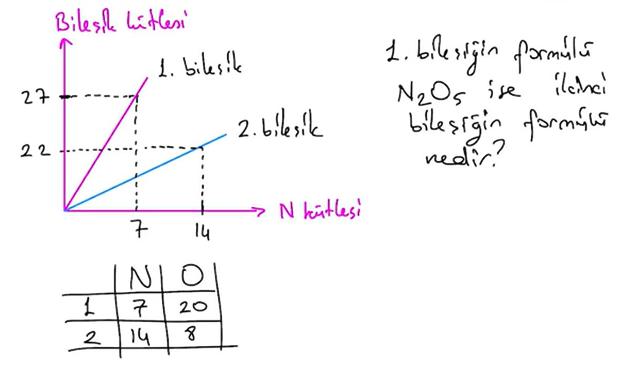 Bileşik kütlesi
1. bileşik
27
2. bileşik
22
N kütlesi
7
14
1. bileşiğin formülü
N₂O₅ ise ikinci
bileşiğin formülü
nedir?
N O
1 7 20
2 14 8